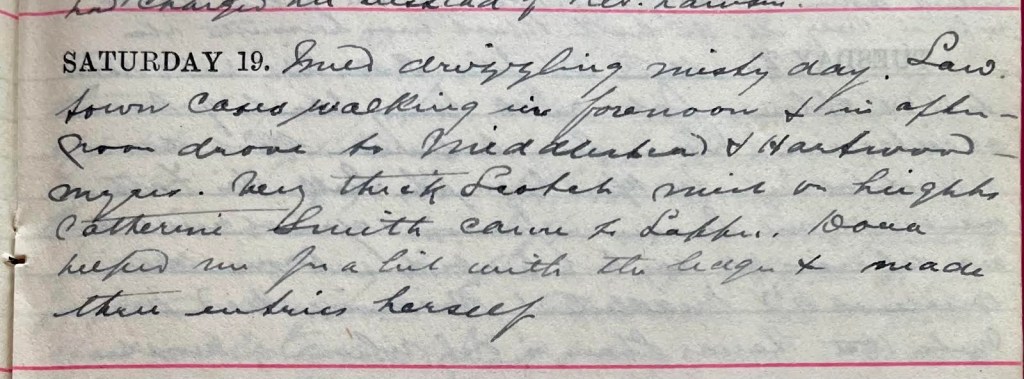 had charged me instead of Rev. Lawson.
SATURDAY 19. Mild drizzling misty day. Saw
town cases walking in forenoon & in after-
noon drove to Middlestead & Hartwood-
myres. Very thick Scotch mist on heights
Catherine Smith came to Supper. Dona
helped me for a bit with the ledger & made
three entries herself